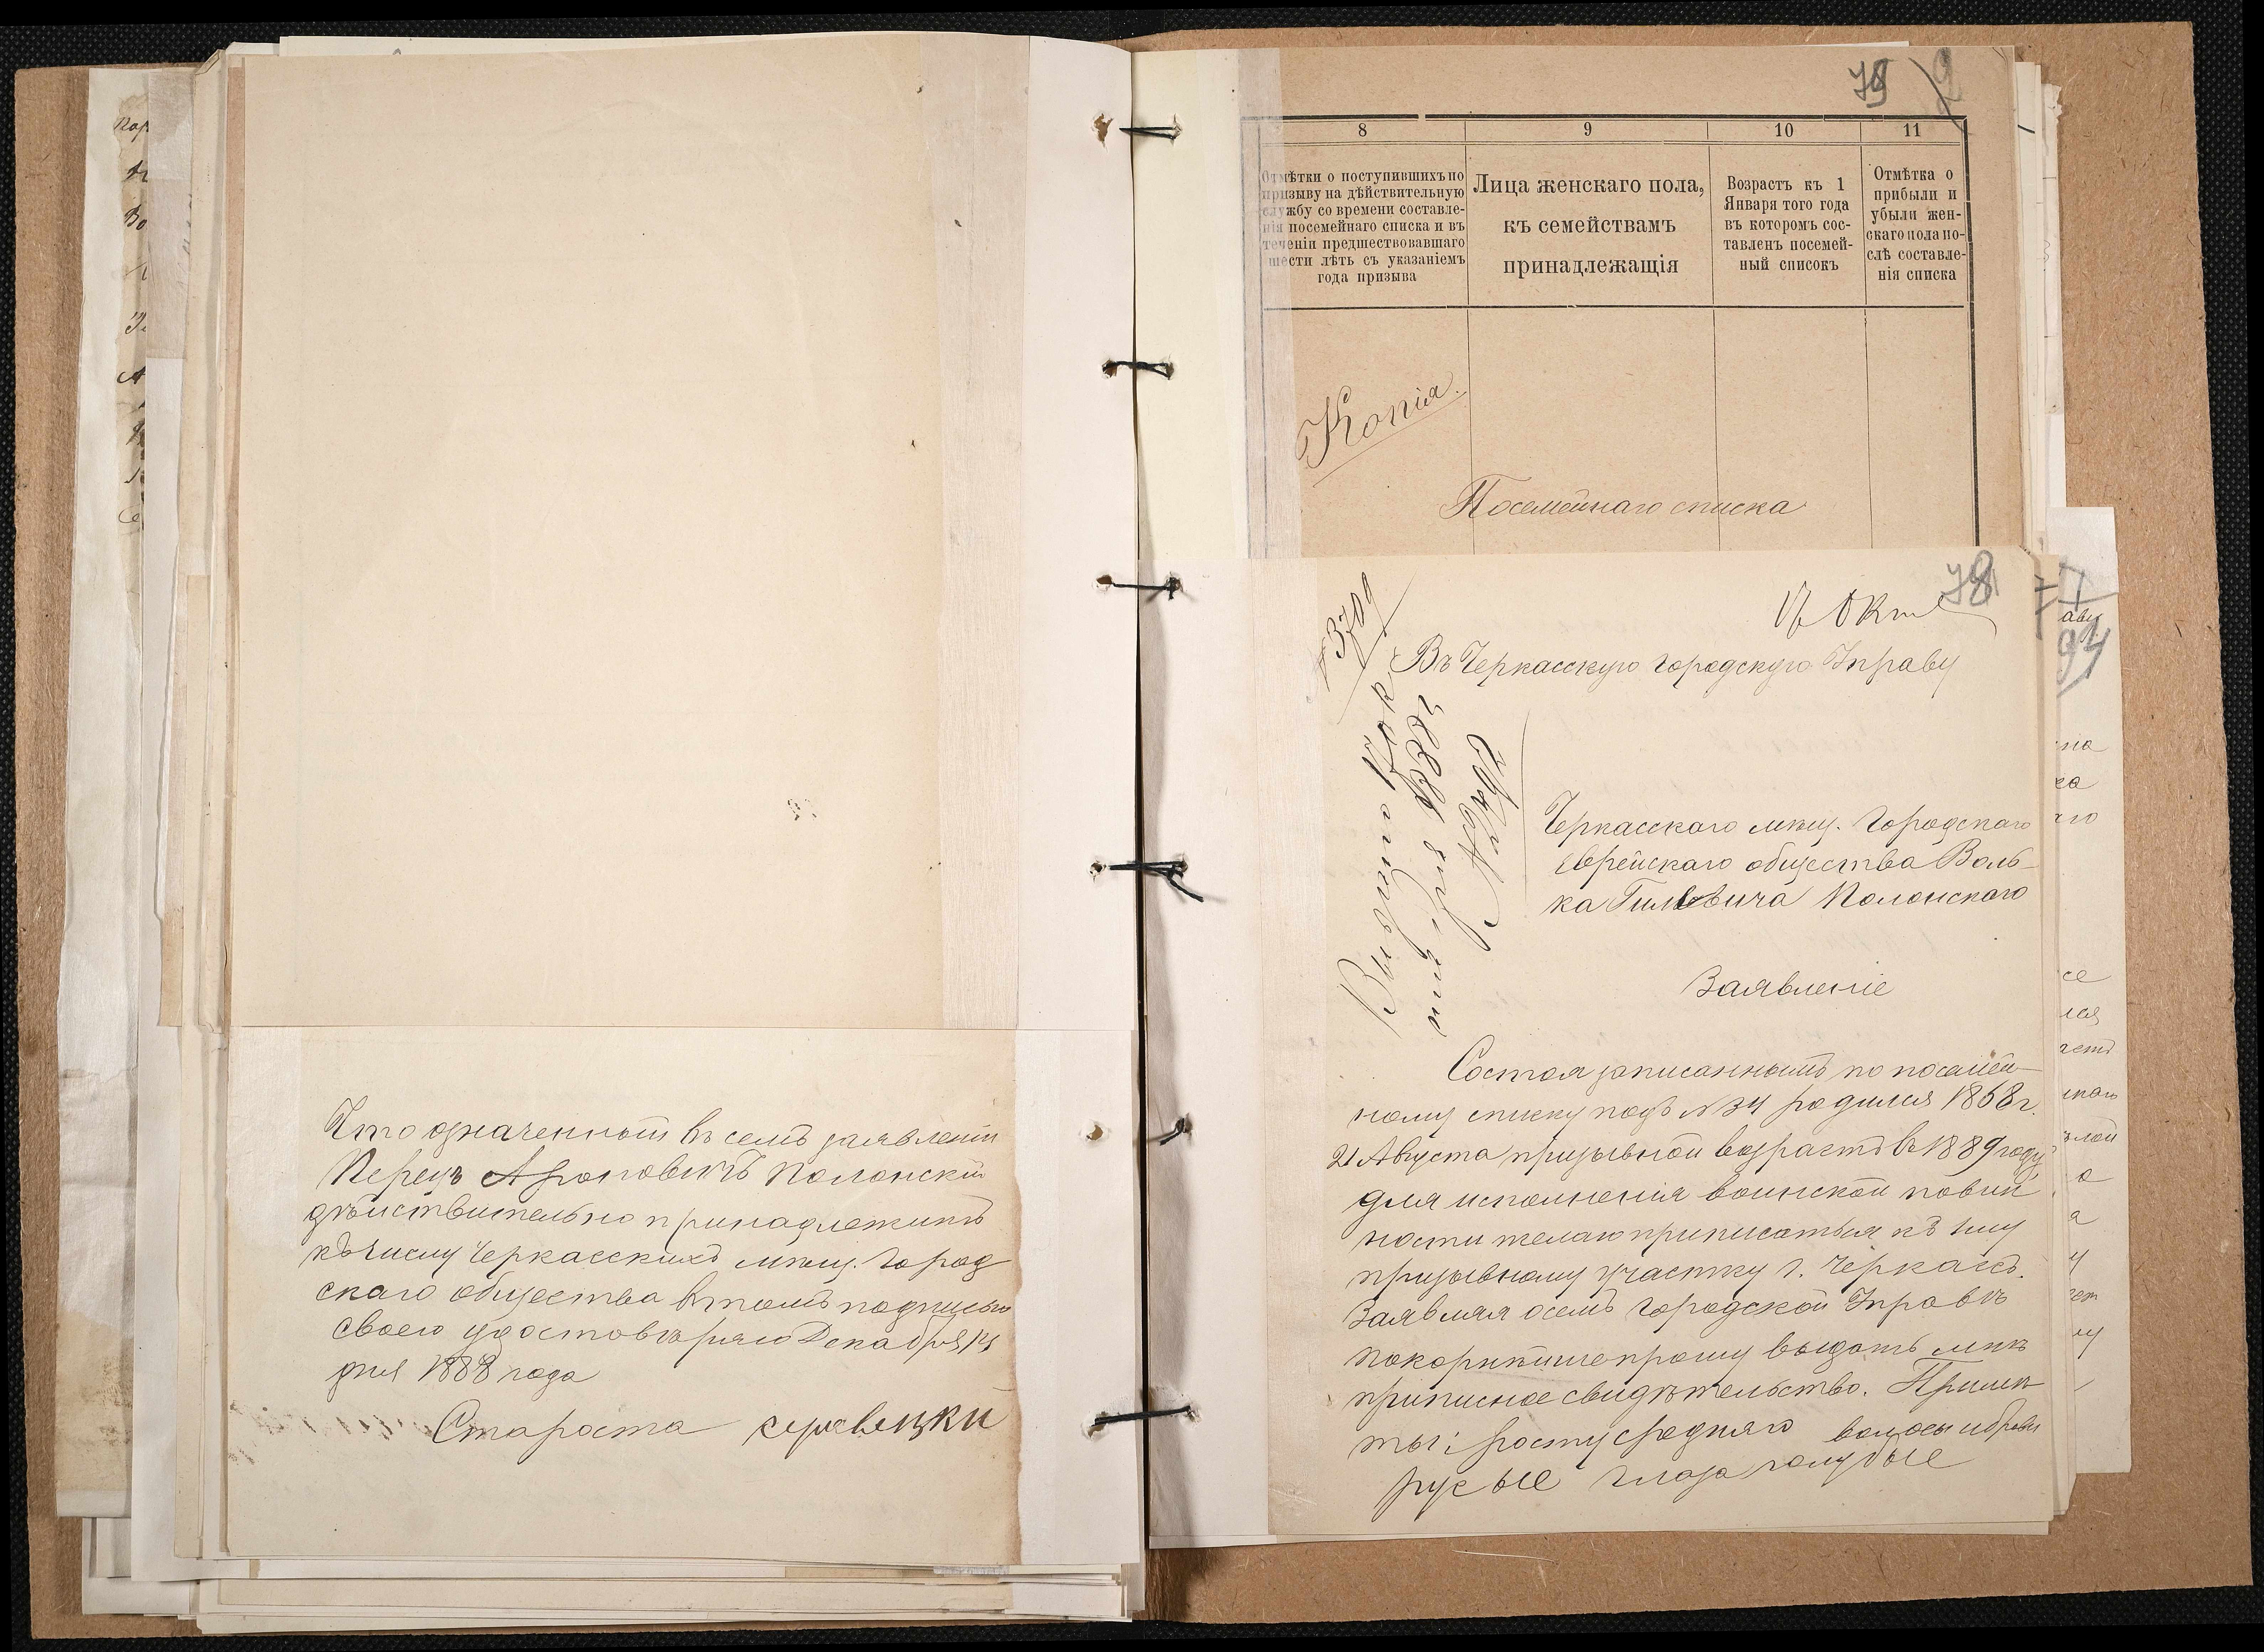 Что означенный въ семъ заявленіи
Перецъ Ароновичъ Полонскій
дѣйствительно принадлежитъ
къ числу Черкасскихъ мѣщ. Город
скаго общества въ томъ подписью
своею удостовѣряю Декабря 14
дня 1888 года
Староста
79
8 9 10 11
Отмѣтки о поступившихъ по
призыву на дѣйствительную
службу со времени составле-
нія посемейнаго списка и въ
теченіи предшествовавшаго
шести лѣтъ съ указаніемъ
года призыва
Лица женскаго пола,
къ семействамъ
принадлежащія
Возрастъ къ 1
Января того года
въ которомъ сос-
тавленъ посемей-
ный списокъ
Отмѣтка о
прибыли и
убыли жен-
скаго пола по-
слѣ составле-
нія списка
Копія.
Посемейнаго списка
78
3709
Въ Черкасскую городскую Управу
Черкасскаго мѣщ. Городскаго
Еврейскаго общества Воль-
ка Полонскаго
Заявленіе
Состоя записаннымъ по посемей-
ному списку подъ № 34 родился 1868 г.
21 Августа призывной возрастъ въ 1889 году
для исполненія воинской повин
ности желаю приписаться къ 1му
призывному участку г. Черкасъ.
Заявляя осемъ Городской Управѣ
покорнѣйше прошу выдать мнѣ
приписное свидѣтельство. Примѣ
ты: росту средняго волосы и брови
русые глаза голубые